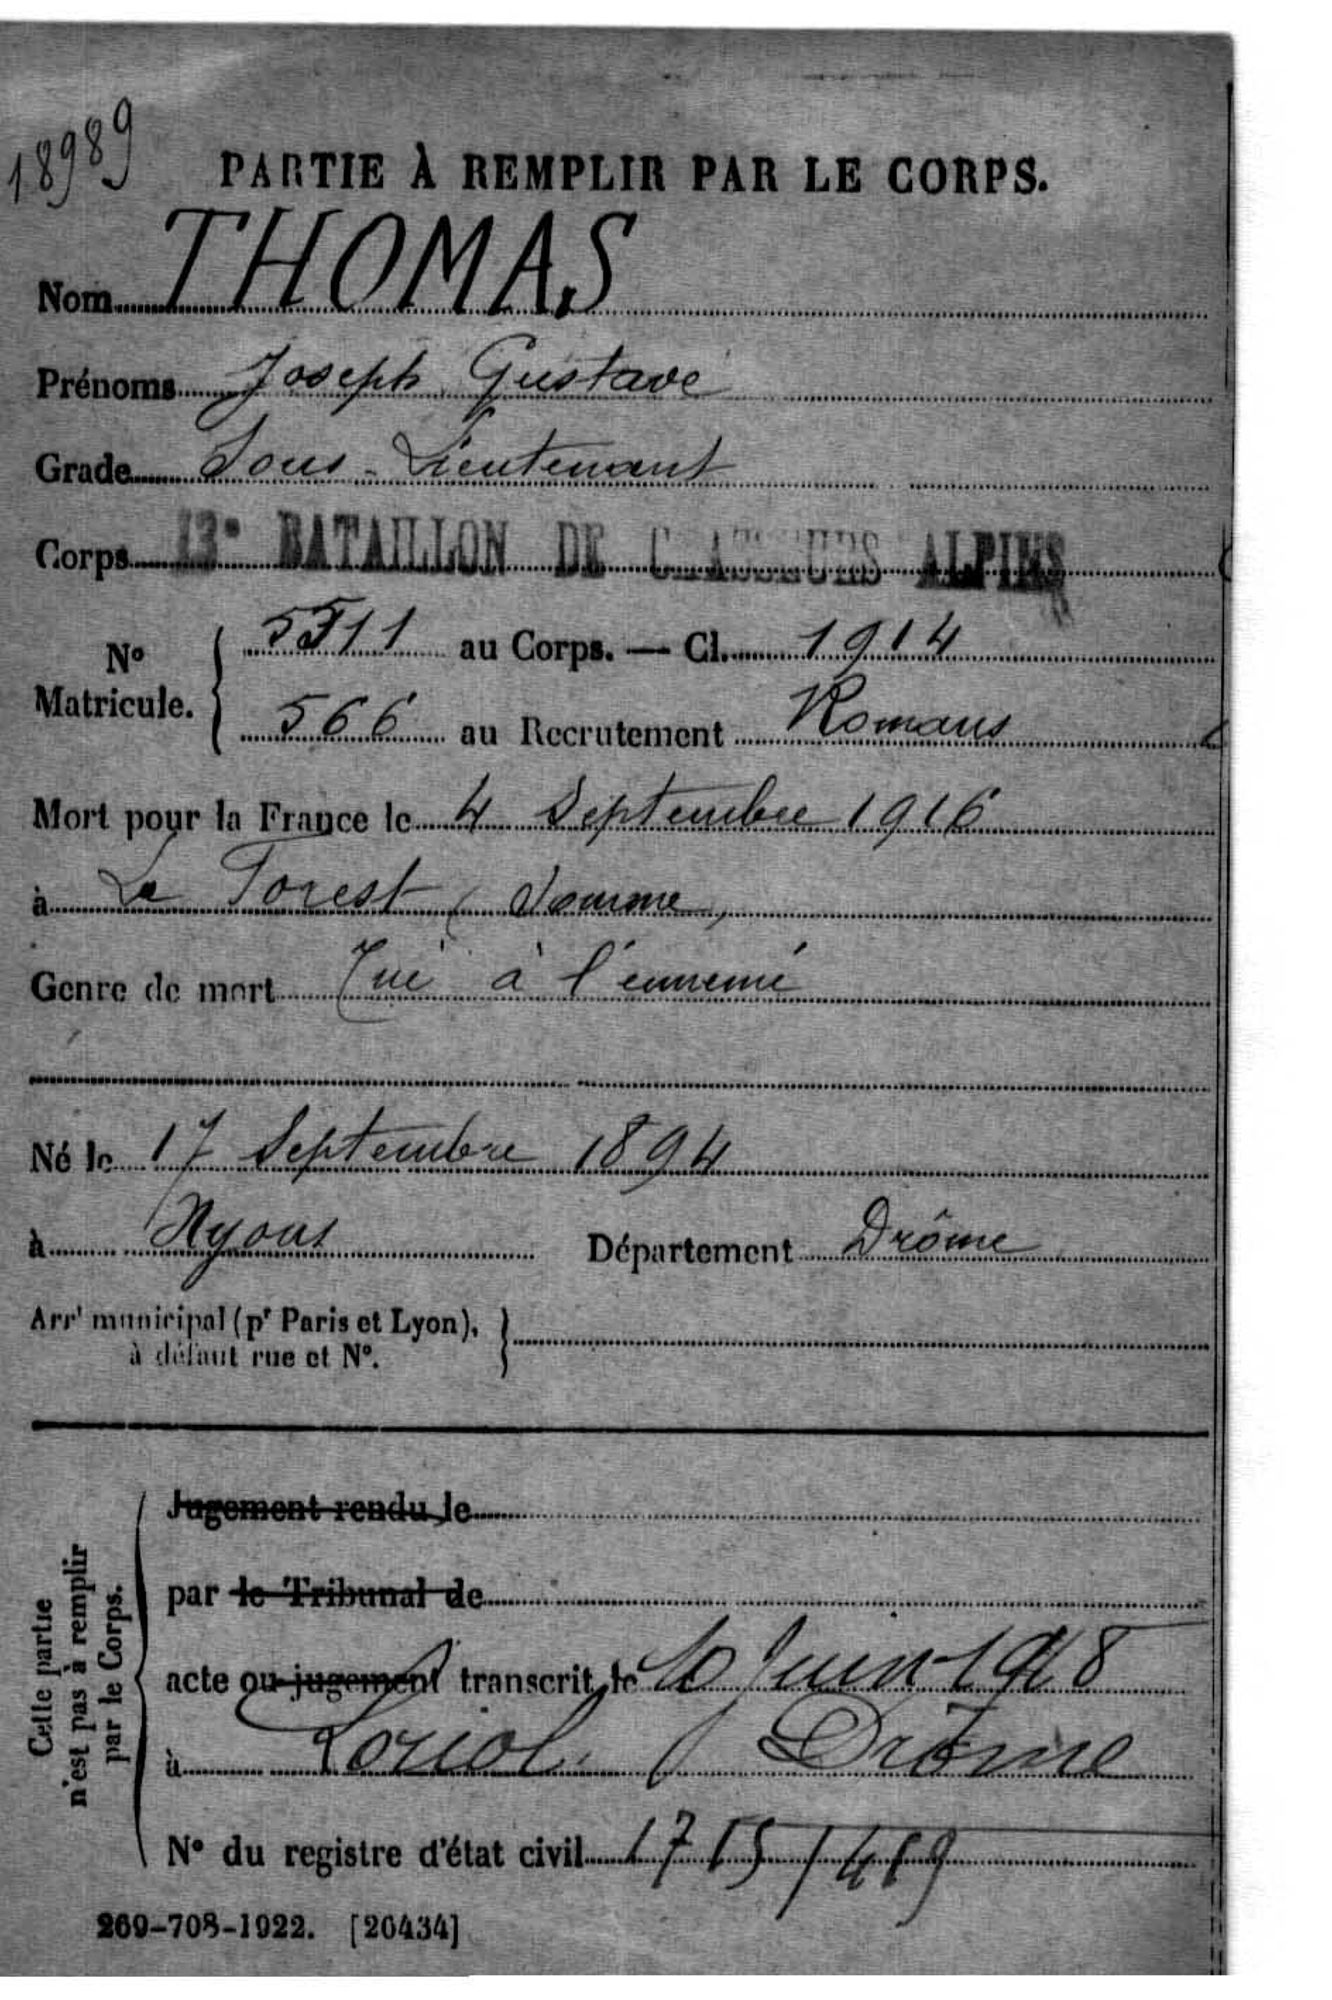 18989
PARTIE À REMPLIR PAR LE CORPS.
Nom THOMAS
Prénoms Joseph Gustave
Grade Sous-Lieutenant
Corps 13e BATAILLON DE CHASSEURS ALPINS
No Matricule. { 5511 au Corps. — Cl. 1914
566 au Recrutement Romans
Mort pour la France le 4 Septembre 1916
à Le Forest (Somme)
Genre de mort Tué à l'ennemi
Né le 17 Septembre 1894
à Nyons Département Drôme
Arrt municipal (pr Paris et Lyon), }
à défaut rue et No.
Cette partie n'est pas à remplir par le Corps.
Jugement rendu le
par le Tribunal de
acte ou jugement transcrit le 10 Juin 1918
à Loriol (Drôme
No du registre d'état civil 1715/419
269-708-1922. [26434]